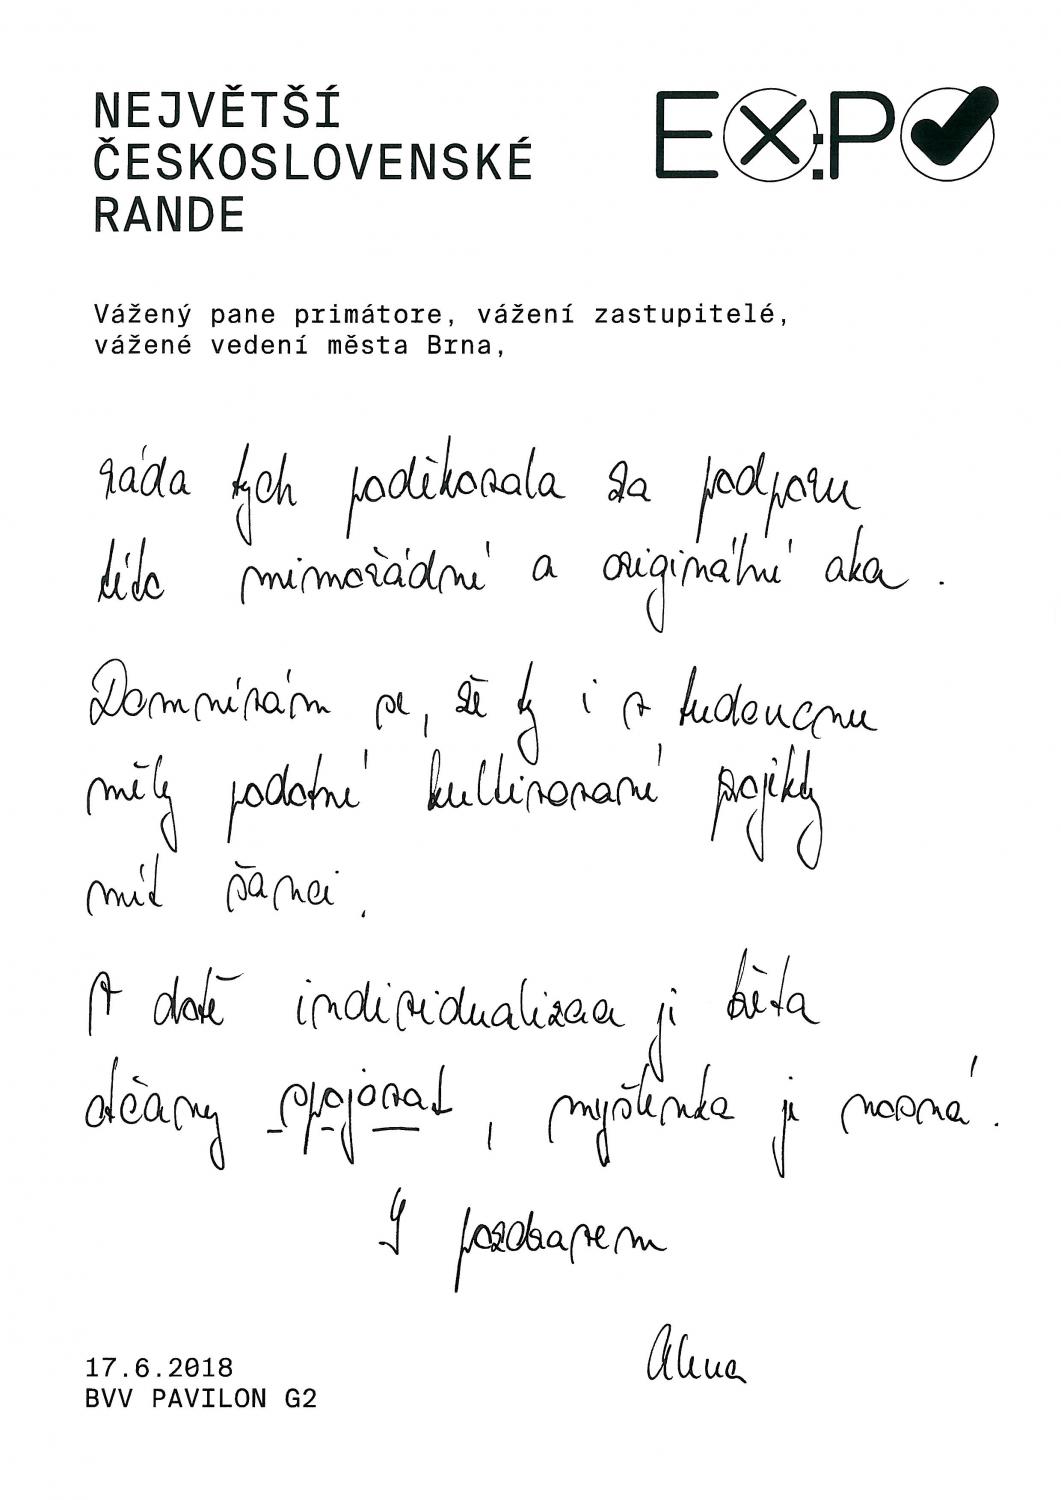 NEJVĚTŠÍ
ČESKOSLOVENSKÉ
RANDE
EX:PO
Vážený pane primátore, vážení zastupitelé,
vážené vedení města Brna,
ráda bych poděkovala za podporu
této mimořádné a originální akce.
Domnívám se, že by i v budoucnu
měly podobné kultivované projekty
mít šanci.
V době individualizace je třeba
občany spojovat, myšlenka je nosná.
S pozdravem
Alena
17.6.2018
BVV PAVILON G2